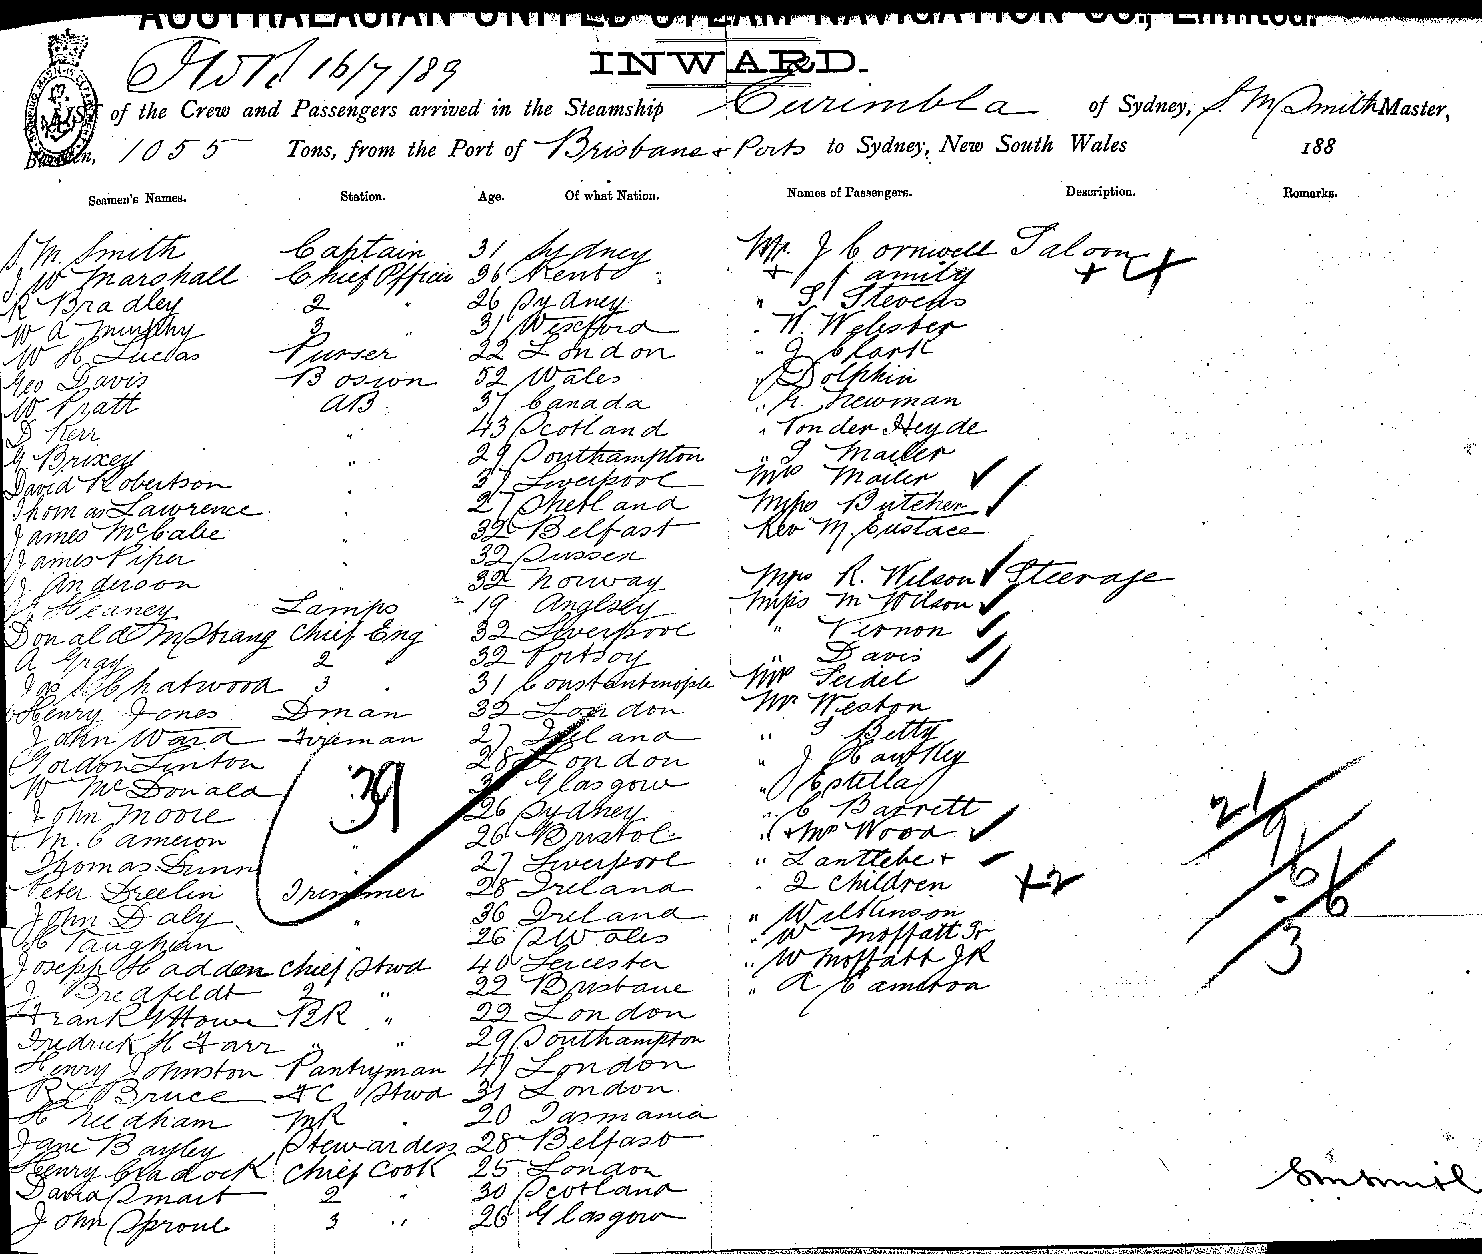 AUSTRALASIAN UNITED STEAM NAVIGATION CO., Limited.
INWARD.
16/7/89
LIST of the Crew and Passengers arrived in the Steamship Curimbla of Sydney, S. M. Smith Master,
Burthen, 1055 Tons, from the Port of Brisbane & Ports to Sydney, New South Wales 188
Seamen's Names. Station. Age. Of what Nation. Names of Passengers. Description. Remarks.
S. M. Smith Captain 31 Sydney Mr. J Cornwell Saloon
J W Marshall Chief Officer 36 Kent + family +
R Bradley 2 " 26 Sydney " S Stevens
W A Murphy 3 " 31 Wexford " W. Webster
W H Lucas Purser 22 London " J Clark
Geo Davis Bosion 52 Wales " Dolphin
W Pratt AB 37 Canada " Newman
D Kerr " 43 Scotland " Vonder Heyde
G Brixey " 29 Southampton " S Mailer
David Robertson " 37 Liverpool Mrs Mailer
Thomas Lawrence " 27 Shetland Miss Butcher
James McCabe " 32 Belfast Rev M Eustace
James Piper 32 Sussex
J Anderson 32 Norway Mrs R. Wilson Steerage
Heaney Lamps 19 Anglsey Miss M Wilson
Donald McStrang Chief Eng 32 Liverpool " Vernon
A Gray 2 " 32 Portsoy " Davis
Jas Chatwood 3 " 31 Constantinople Mr Seidel
Henry Jones Dman 32 London Mr Weston
John Ward Fireman 27 Ireland " S Betty
Gordon Linton " 28 London " J Hawkey
W McDonald 39 Glasgow " Estella
John Moore 26 Sydney " C Barrett
M. Cameron " 26 Bristol " + Mrs Wood
Thomas Dunn 27 Liverpool " Lanttebe +
Peter Dreelin Trimmer 28 Ireland " 2 Children +2
John Daly " 36 Ireland " Wilkinson
Vaughan 26 S Wales " W Moffatt Sr
Joseph Hadden Chief Stwd 40 Leicester " W Moffatt JR
J Bredfeldt 2 " 22 Brisbane " A Cameron
Frank G Howe BR " 22 London
Fredrick H Farr " " 29 Southampton
Henry Johnston Pantryman 47 London
R L Bruce FC Stwd 31 London
H Needham MR " 20 Tasmania
Jane Bayley Stewardess 28 Belfast
Henry Cradock Chief Cook 25 London
David Smart 2 " 30 Scotland
John Sproul 3 " 26 Glasgow
39
21
9
6
6
3